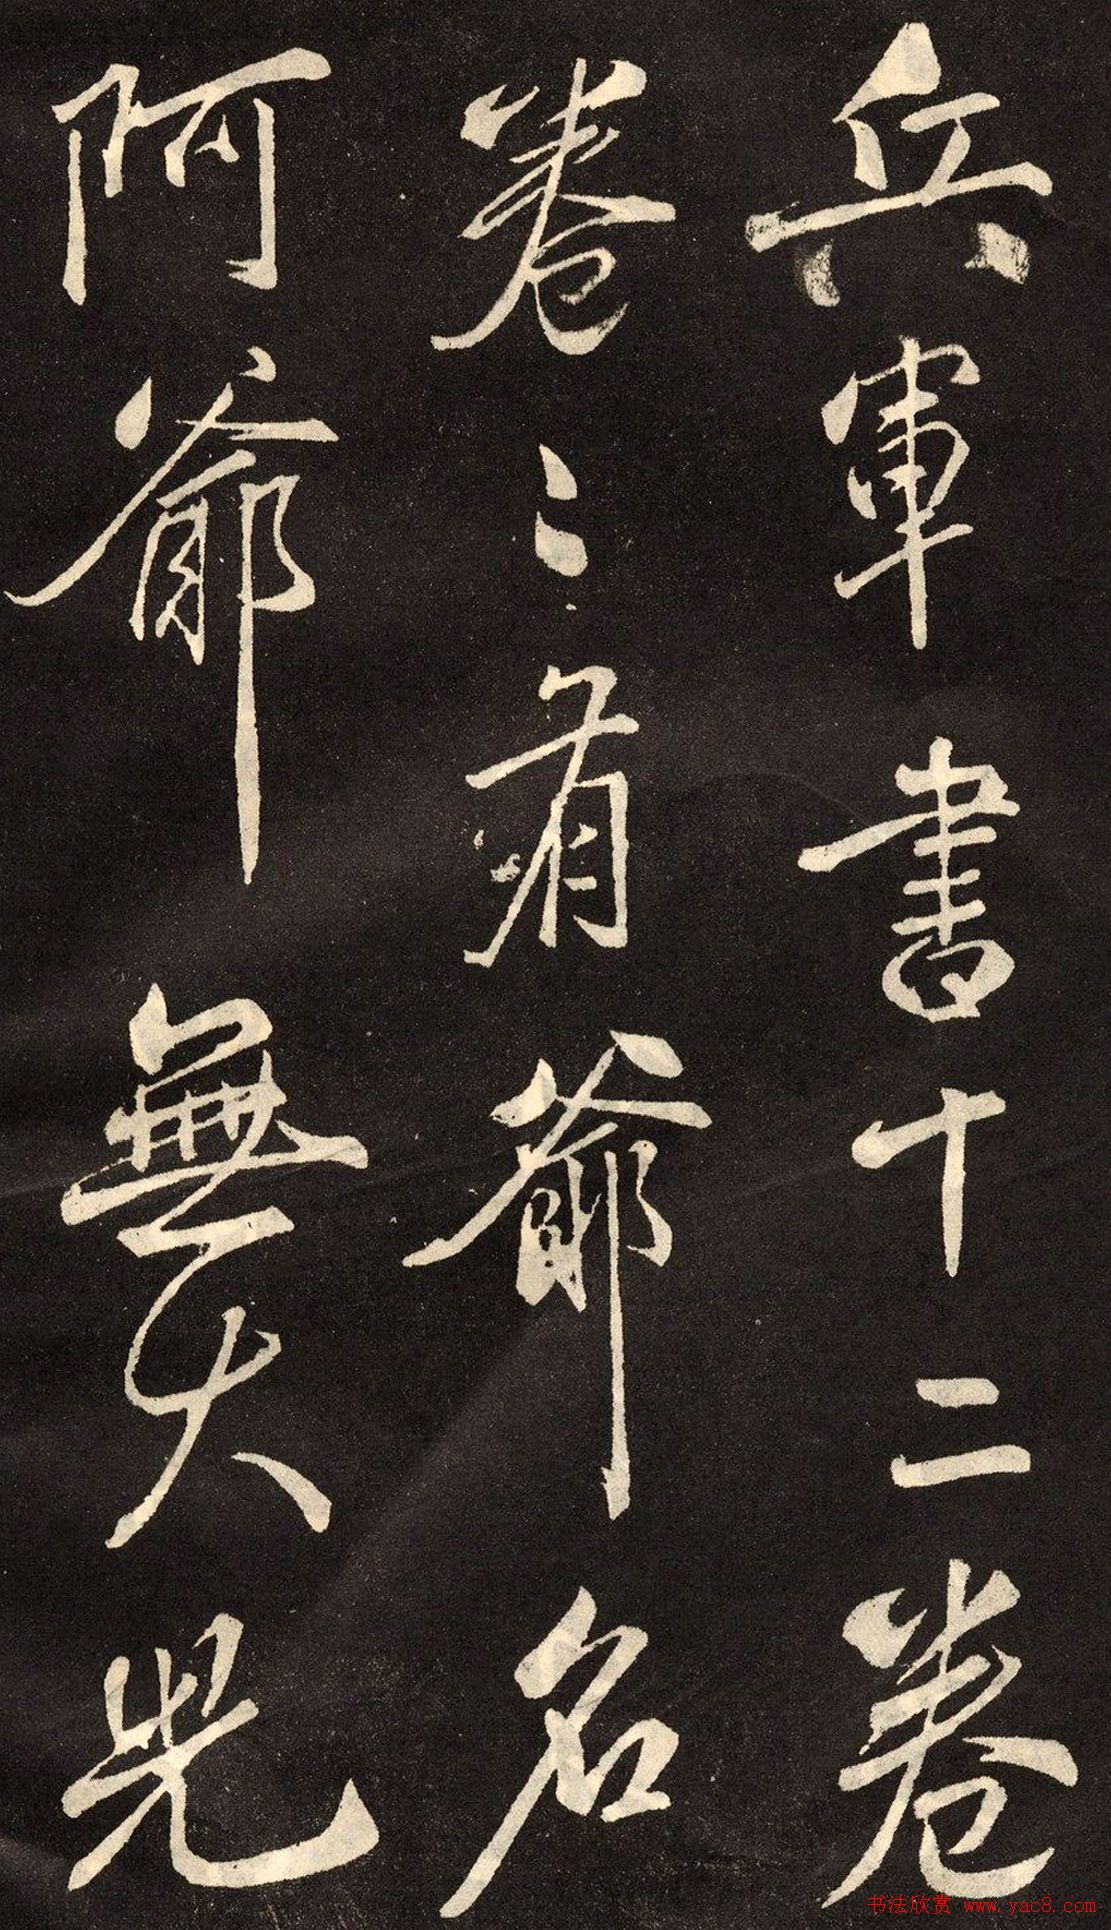 兵軍書十二卷
卷〻有爺名
阿爺無大兒
书法欣赏 www.yac8.com